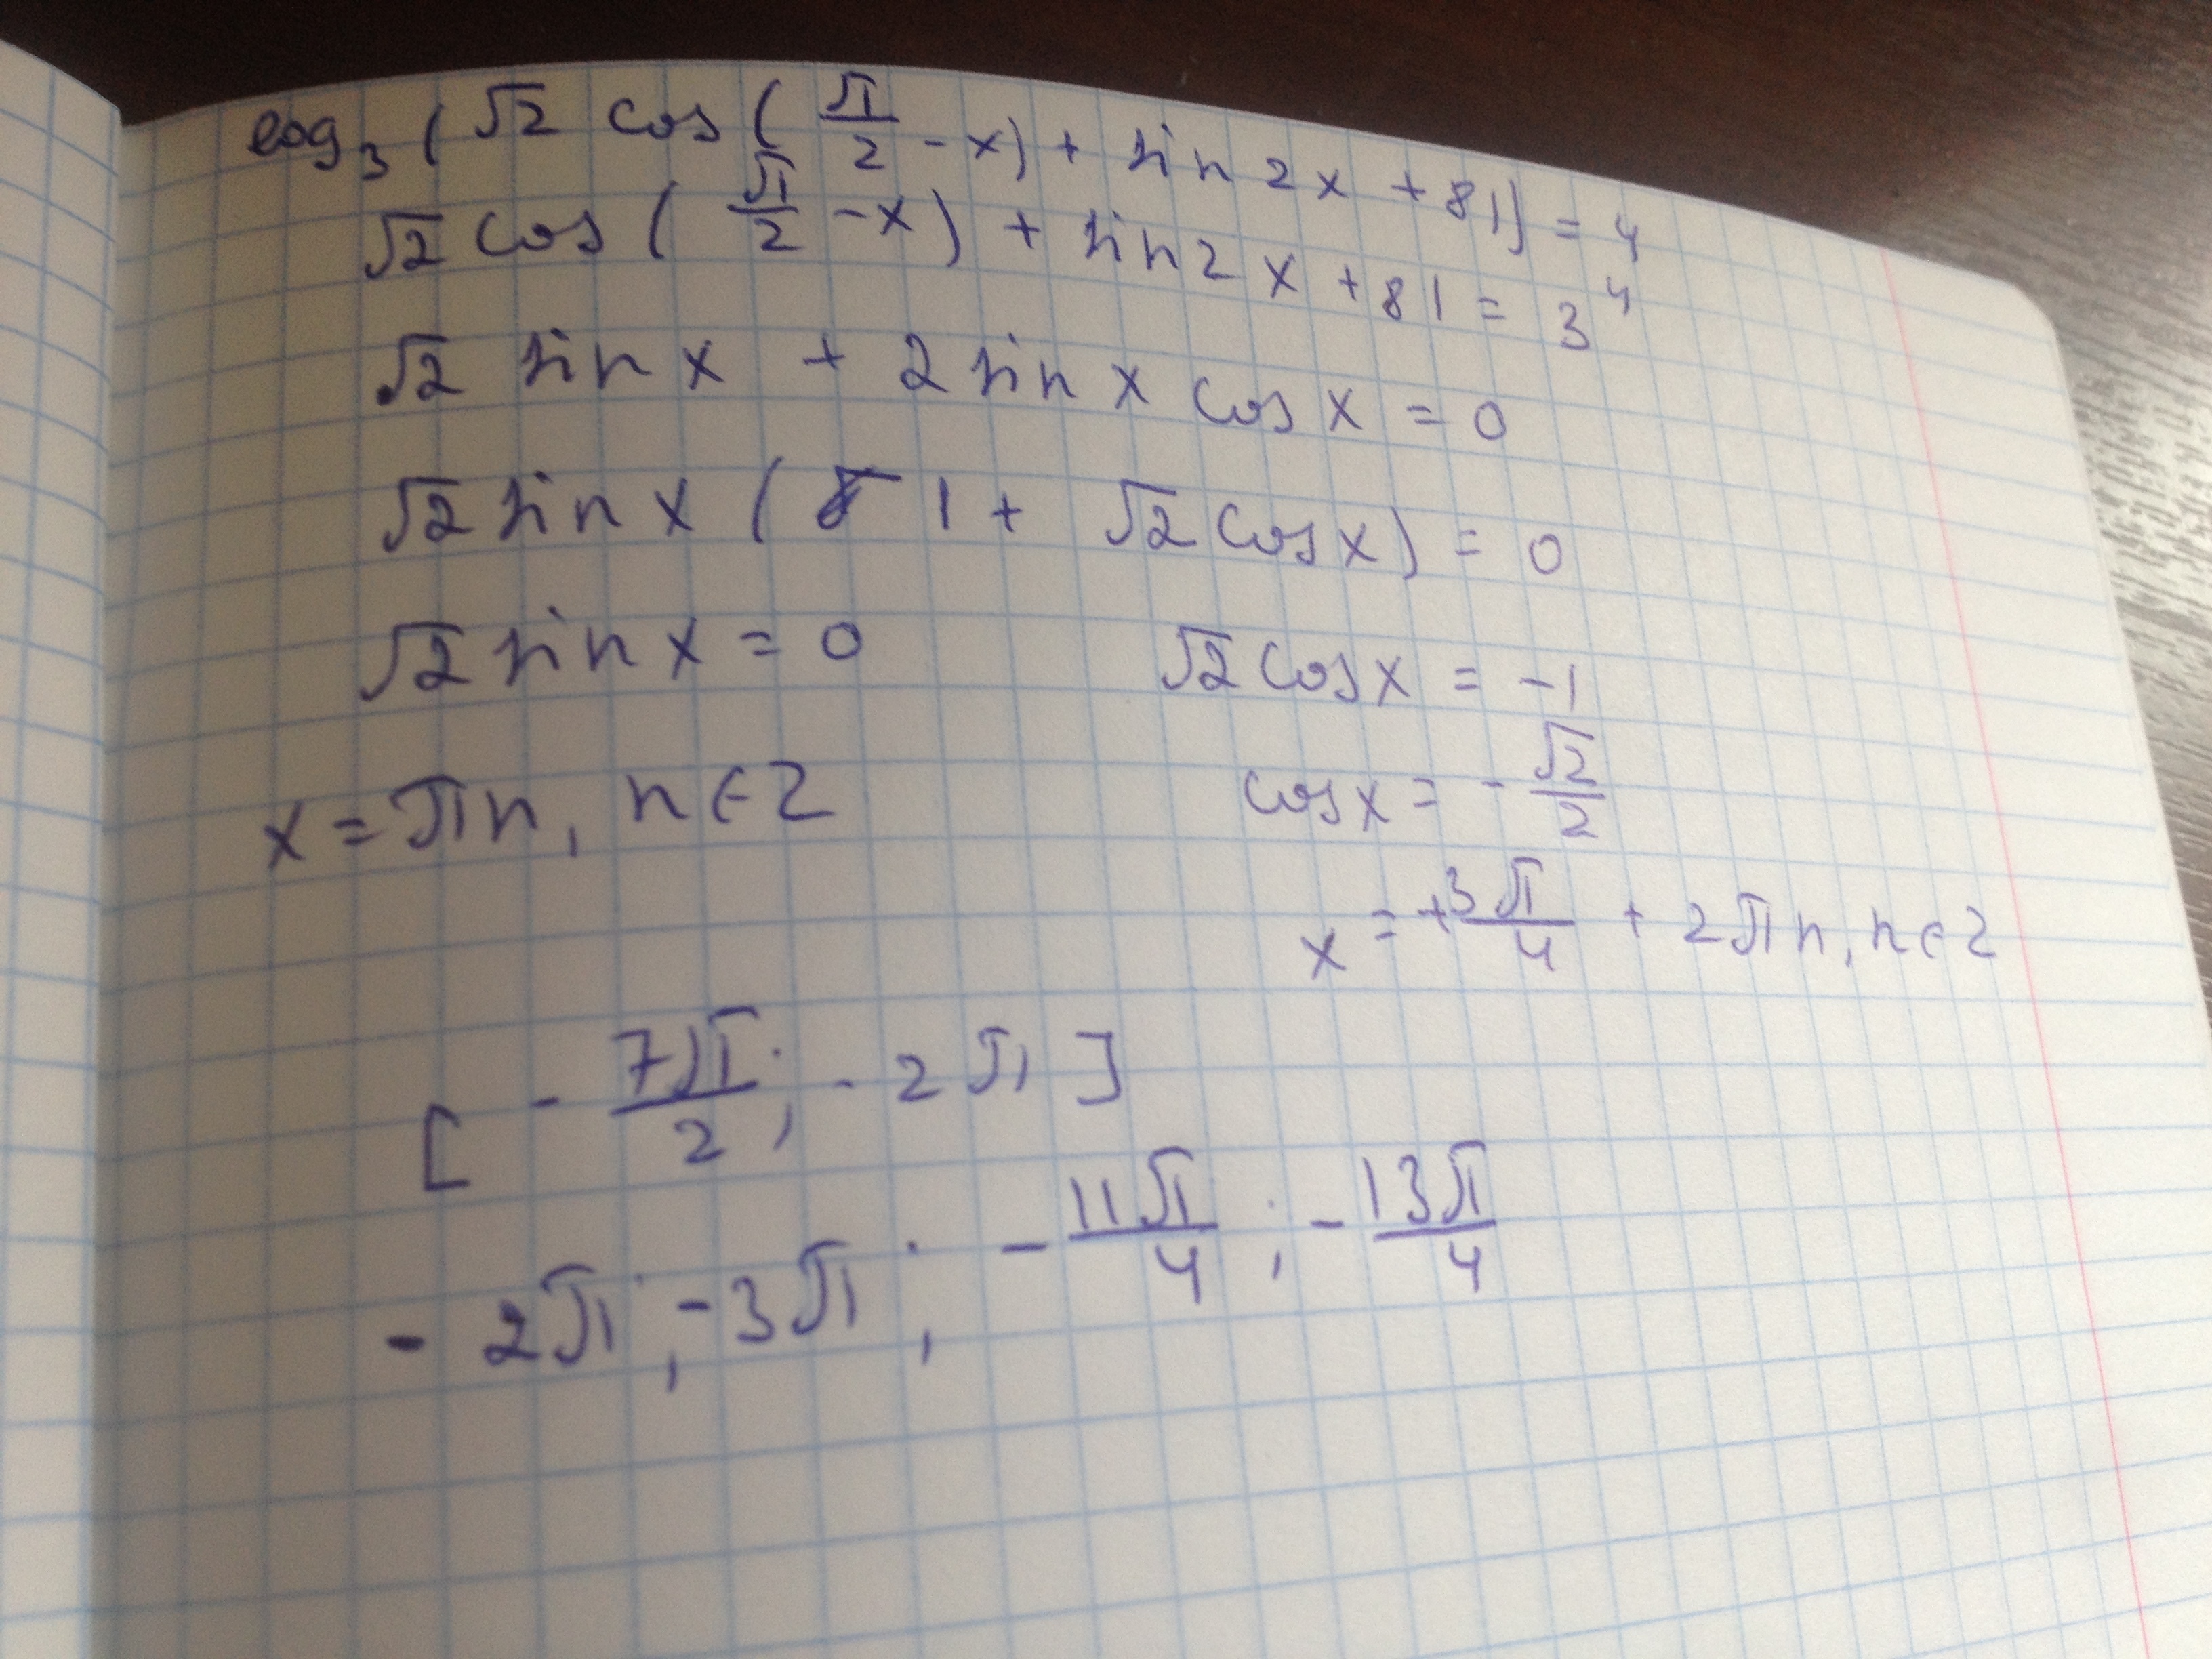 log₃(√2 cos(π/2 - x) + sin 2x + 81) = 4
√2 cos(π/2 - x) + sin 2x + 81 = 3⁴
√2 sin x + 2 sin x cos x = 0
√2 sin x (1 + √2 cos x) = 0
√2 sin x = 0 √2 cos x = -1
x = πn, n ∈ Z cos x = -√2/2
x = +3π/4 + 2πn, n ∈ Z
[-7π/2; -2π]
-2π; -3π; -11π/4; -13π/4